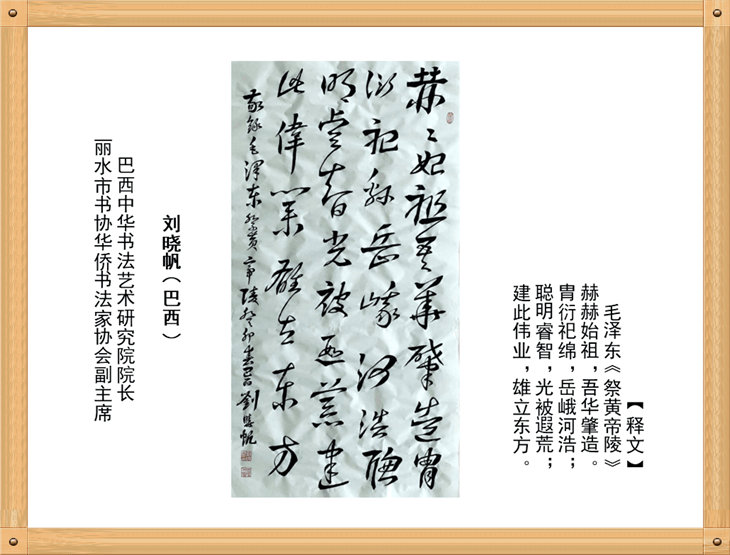 【释文】
毛泽东《祭黄帝陵》
赫赫始祖，吾华肇造。
胄衍祀绵，岳峨河浩；
聪明睿智，光被遐荒；
建此伟业，雄立东方。
赫〻始祖吾華肇造胄
衍祀綿岳峨河浩聰
明睿智光被遐荒建
此偉業雄立東方
敬錄毛澤東祭黃帝陵癸卯劉曉帆
刘晓帆（巴西）
巴西中华书法艺术研究院院长
丽水市书协华侨书法家协会副主席